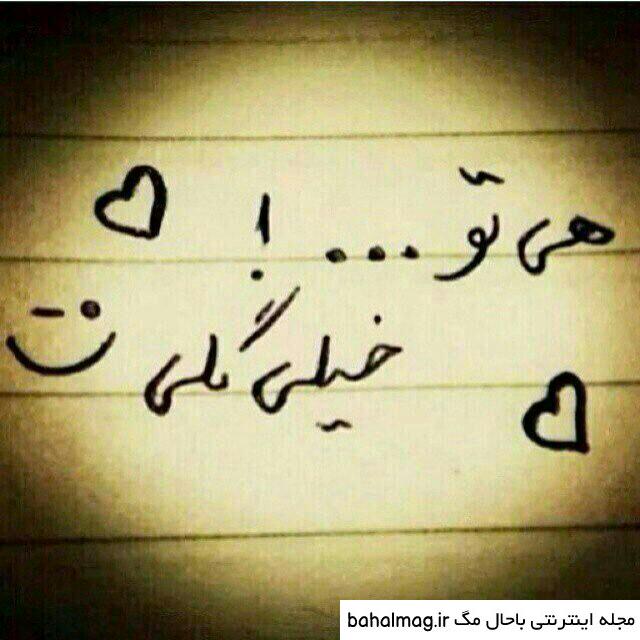 هی تو...!
خیلی گلی
مجله اینترنتی باحال مگ bahalmag.ir